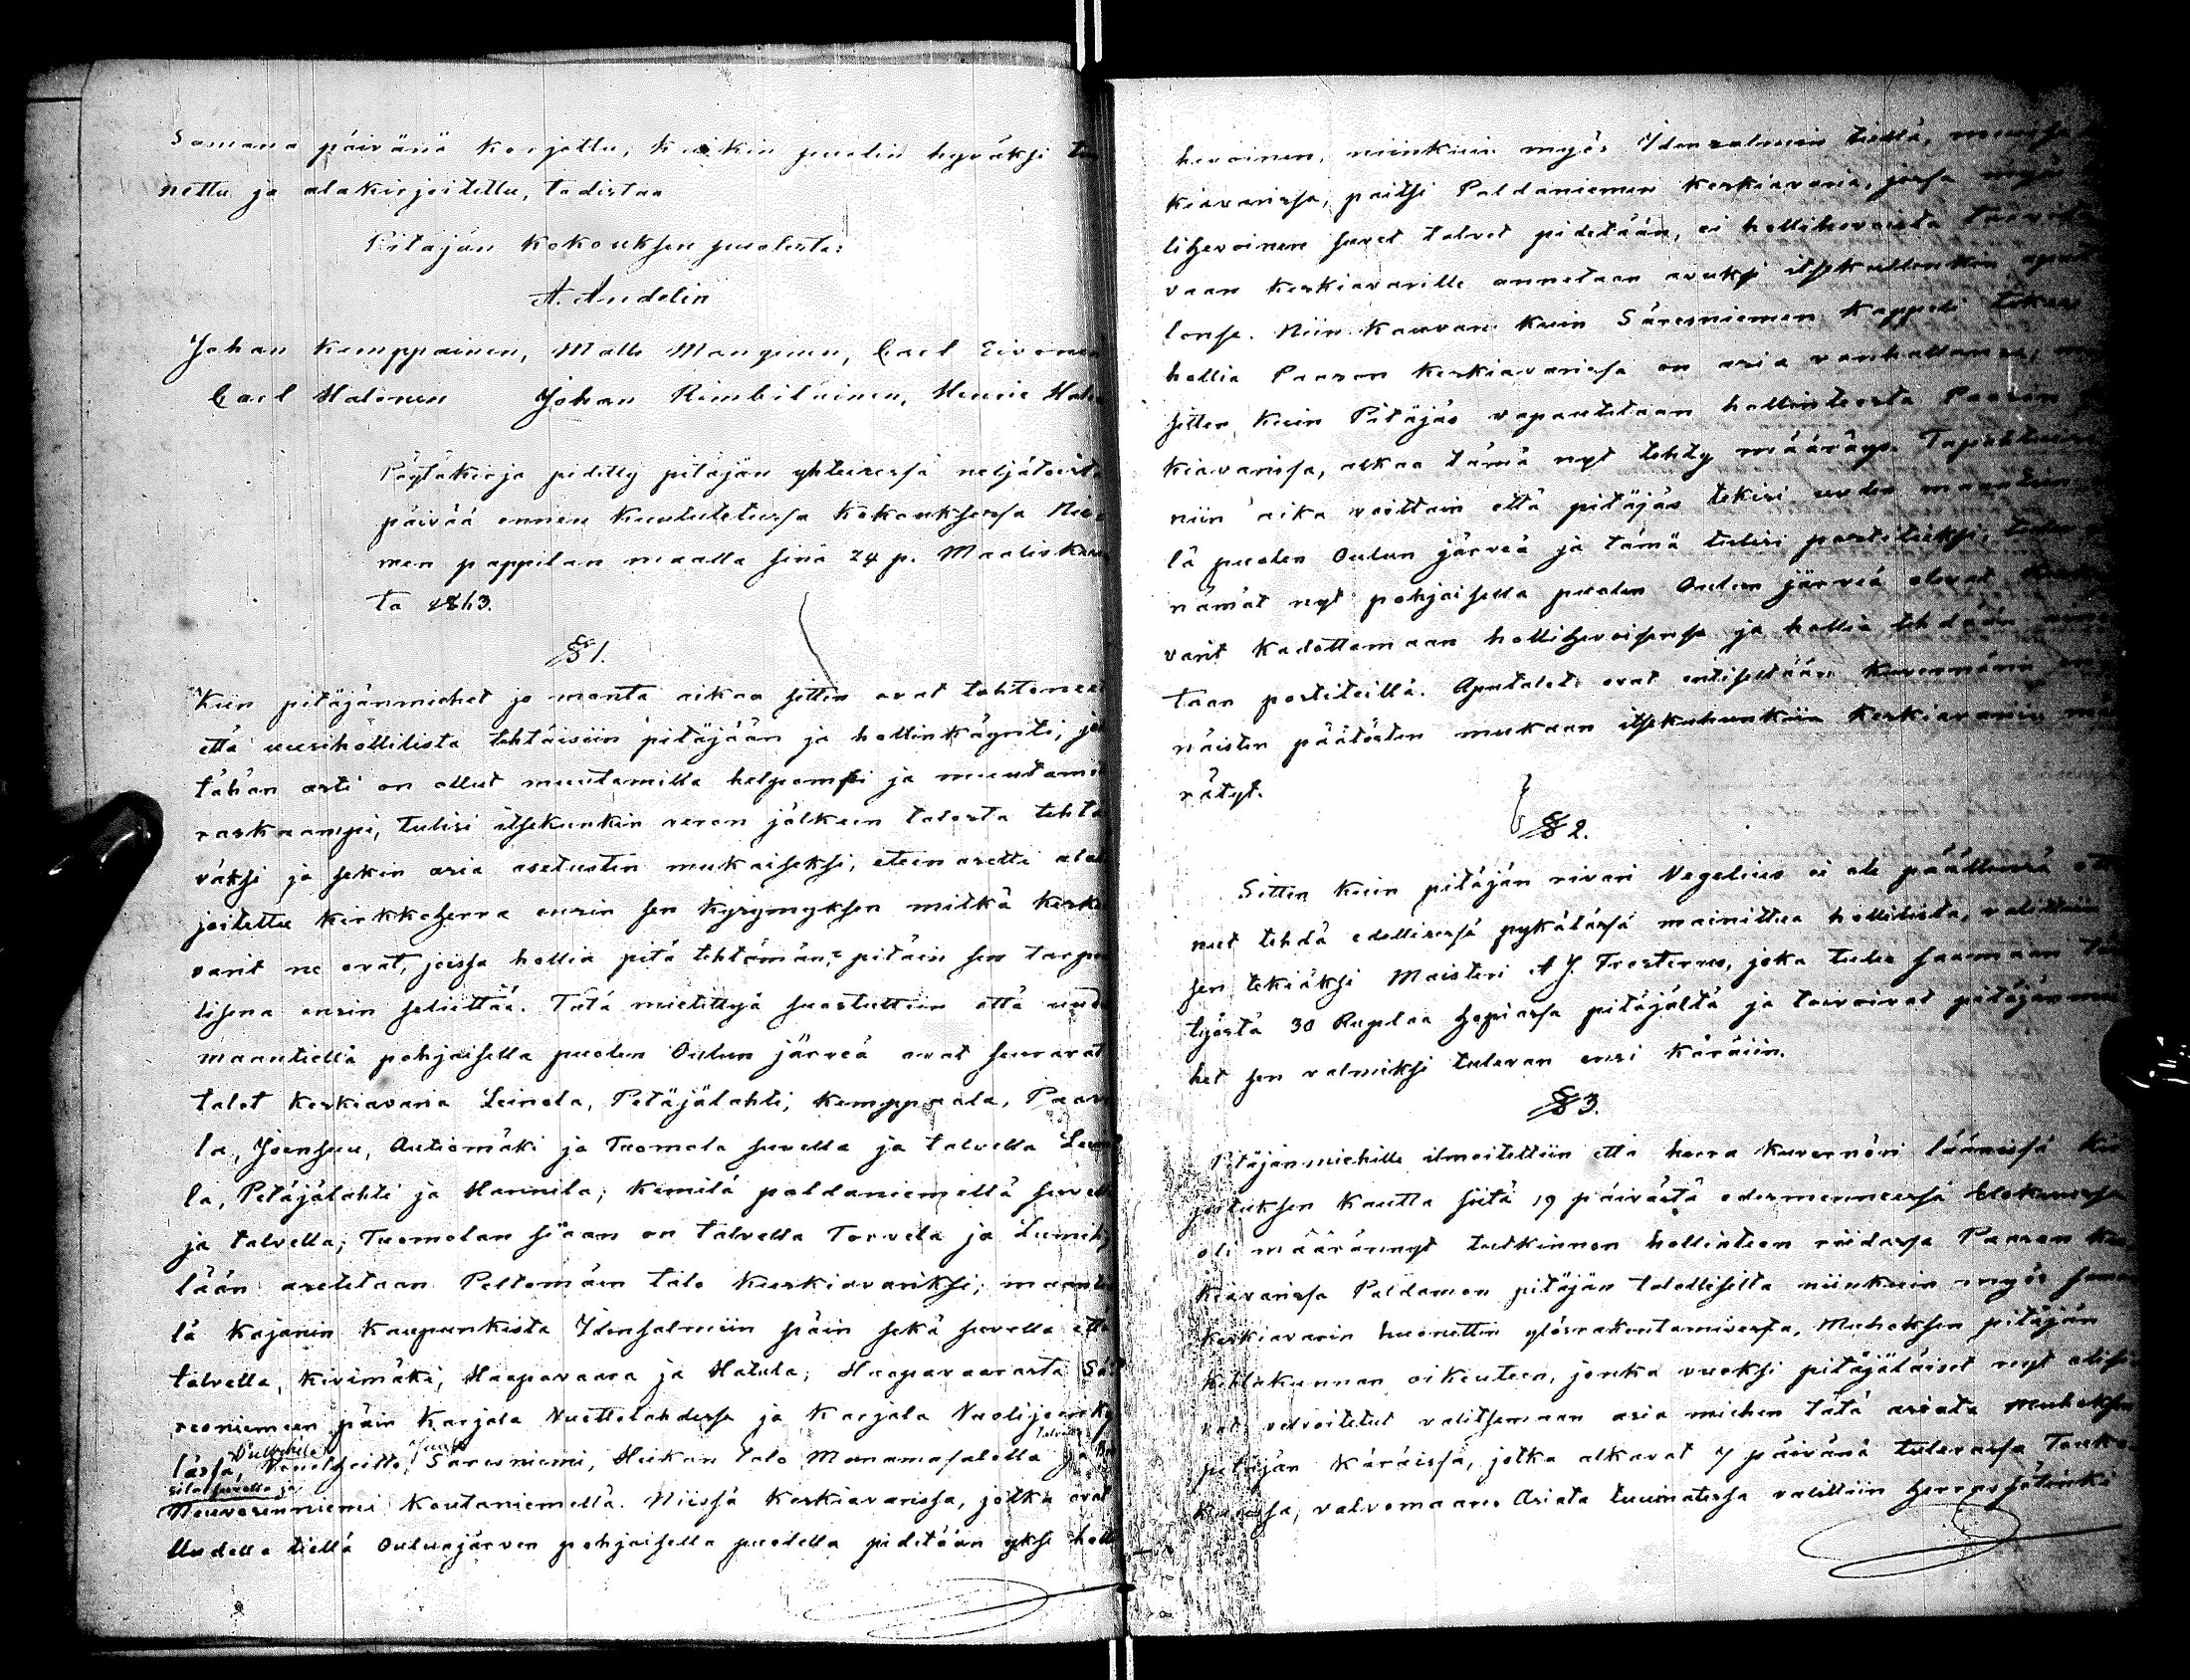 Samana päivänä korjattu, kaikin puolin hyväksi
nettu ja alakirjoitettu, todistaa
Pitäjän kokouksen puolesta:
A. Andelin
Johan Kemppainen, Matts Manginen, Carl Eivonen
Carl Halonen Johan Rimbiläinen, Henric
Pöytäkirja pidetty pitäjän yhteisessä neljätoista
päivää ennen kuulutetussa kokouksessa Nie-
men pappilan maalla sinä 24 p. Maalisku
ta 1863.
§ 1.
Kuin pitäjänmiehet jo monta aikaa sitten ovat tahtoneet
että uusi hollilista tehtäisiin pitäjään ja hollinkäynti, jo
tähän asti on ollut muutamilla helpompi ja muutamil
raskaampi, tulisi itsekunkin veron jälkeen talosta tehtä
väksi ja sekin asia asetusten mukaiseksi, eteen asetti alak
joitettu kirkkoherra ensin sen kysymyksen mitkä keski
varit ne ovat, joissa hollia pitä tehtämän, pitäin sen tarpe
lisena ensin selittää. Tätä mietittyä suostuttiin että uude
maantiellä pohjaisella puolen Oulun järveä ovat seuravat
talot keskiavaria Leinola, Petäjälahti, Kemppaala, Paaso
la, Joensuu, Autiomäki ja Tuomola suvella ja talvella
la, Petäjälahti ja Hannila; Kemilä paldaniemellä suvell
ja talvella; Tuomolan siaan on talvella Torvela ja
lään asetetaan Peltomäen talo keskiavariksi; maant
lä Kajanin kaupunkista Idensalmiin päin sekä suvella että
talvella, Kivimäki, Haapavaara ja Hatula; Haapavaarasta Sä
resniemeen päin Karjala Vuottolahdessa ja Karjala Vuolijoenky
lässä, Säresniemi, Heikan talo Manamasalolla ja
suvella ja
Neuvosenniemi Koutaniemellä. Niissä keskiavarissa, jotka ovat
Uudella tiellä Oulunjärven pohjaisella puolella pidetään yksi holli
hevoinen, niinkuin myös Idensalmen tiellä,
kiavarissa, paitsi Paldaniemen keskiavaria, jossa myös
lihevoinen suvet talvet pidetään, ei hollihevoista
vaan keskiavarille annetaan avuksi itsekullenkin
lonsa. Niin kauvan kuin Säresniemen kappeli tekee
hollia Paason keskiavarissa on asia vanhallansa,
sitten kuin Pitäjäs vapautetaan hollinteosta Paason
kiavarissa, alkaa tämä nyt tehty määräys. Tapahtuisi
niin aika voittain että pitäjäs tekisi uuden
lä puolen Oulun järveä ja tämä tulisi postitieksi,
nämät nyt pohjaisella puolen Oulun järveä olevat
varit kadottamaan hollihevoisensa ja hollia tehdään
taan postiteillä. Aputalot ovat entisellään kuvernöörin
näisten päätösten mukaan itsekuhunkin keskiavariin mä
rätyt.
§ 2.
Sitten kuin pitäjän nivari Vegelius ei ole päättänyt
nut tehdä edellisessä pykälässä mainittua hollilista, valittiin
sen tekiäksi Maisteri A J. Frosterus, joka tulee saamaan
työstä 30 Ruplaa hopiassa pitäjältä ja toivoivat pitäjänmie
het sen valmiksi tulevan ensi käräiin.
§ 3.
Pitäjänmiehille ilmoitettiin että herra kuvernöri läänissä
joituksen kautta siitä 19 päivästä edesmenneessä Elokuussa
oli määrännyt tutkinnon hollinteon riidassa Paason kes
kiavarissa Paldamon pitäjän talollisilta niinkuin myös saman
keskiavarin huonetten ylösrakentamisesta, Muhoksen pitäjän
kihlakunnan oikeuteen, jonka vuoksi pitäjäläiset nyt olisi
vat velvoitetut valitsemaan asia miehen tätä asiata Muhoksen
pitäjän käräissä, jotka alkavat 7 päivänä tulevassa Touko
kuussa, valvomaan. Asiata tuumatessa valittiin